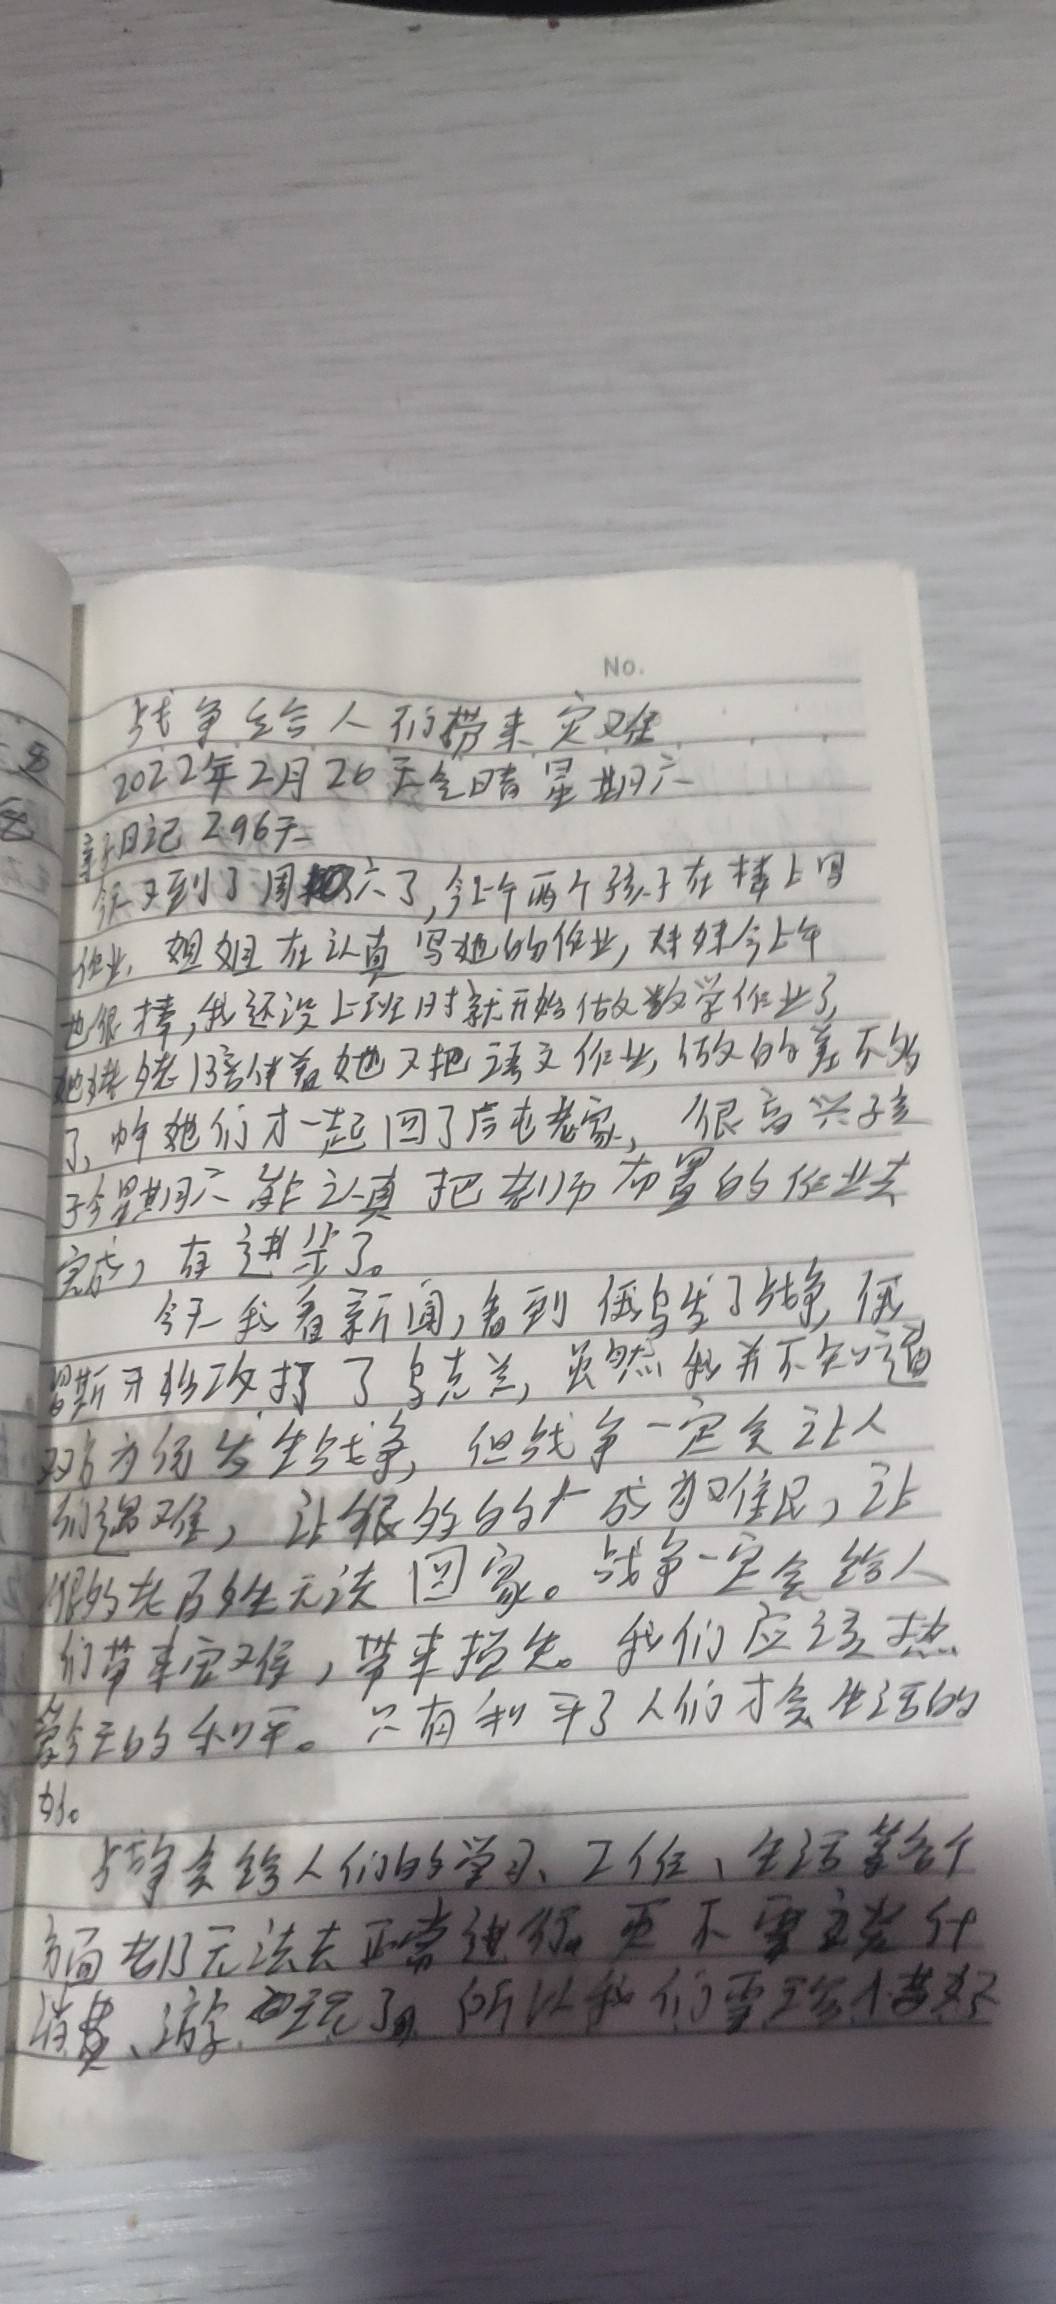 No.
战争给人们带来灾难
2022年2月26 天气晴 星期六
亲子日记 296天
今天又到了周六了,今上午两个孩子在楼上写
作业,姐姐在认真写她的作业,妹妹今上午
也很棒,我还没上班时就开始做数学作业了,
她姥姥陪伴着她又把语文作业,做的差不多
了,中午她们才一起回了老家,很高兴孩
子今星期六能认真把老师布置的作业去
完成,有进步了。
今天我看新闻,看到俄乌发了战争,俄
罗斯开始攻打了乌克兰,虽然我并不知道
双方何发生战争,但战争一定会让人
们遇难,让很多的人成为难民,让
很多老百姓无法回家。战争一定会给人
们带来灾难,带来损失。我们应该热
爱今天的和平。只有和平了人们才会生活的
好。
战争会给人们的学习、工作、生活等各个
方面都无法去正常进行,更不要谈什
消费、游玩了。所以我们要珍惜好